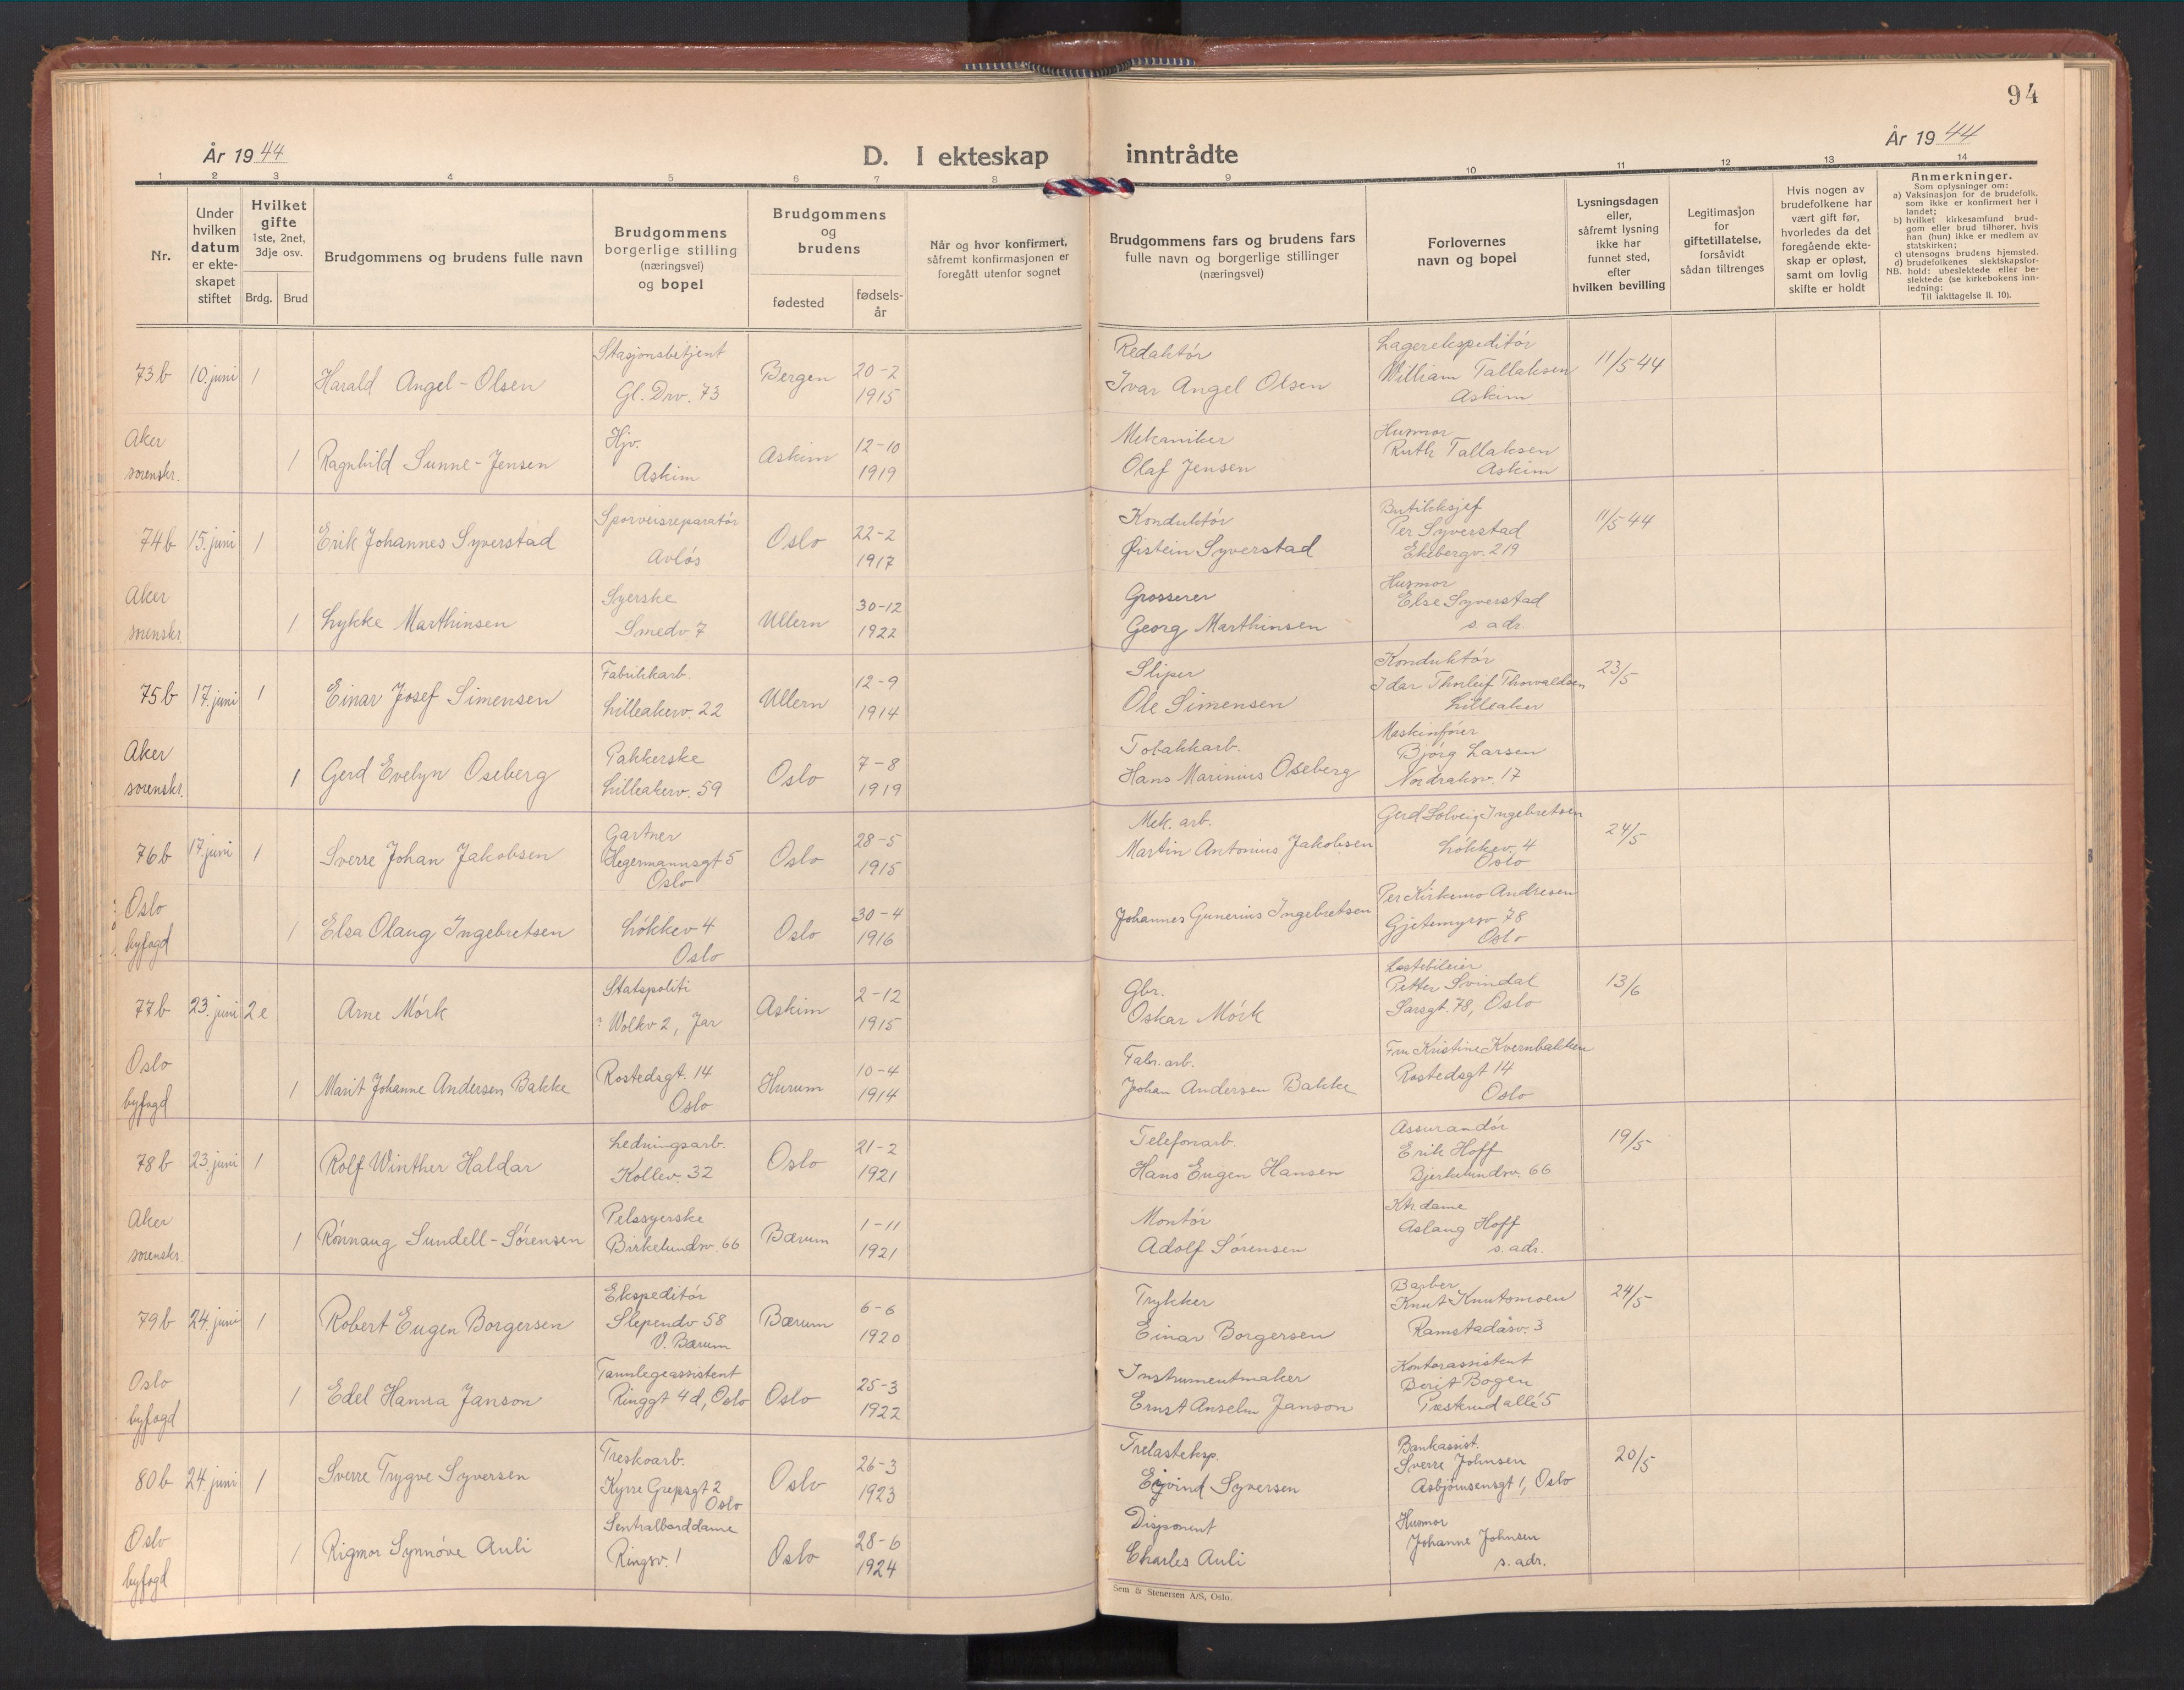 94
År 1944
D. I ekteskap inntrådte
År 1944
1 2 3 4 5 6 7 8 9 10 11 12 13 14
Nr.
Under
hvilken
datum
er ekte-
skapet
stiftet
Hvilket
gifte
1ste, 2net,
3dje osv.
Brdg. Brud
Brudgommens og brudens fulle navn
Brudgommens
borgerlige stilling
(næringsvei)
og bopel
Brudgommens
og
brudens
fødested
fødsels-
år
Når og hvor konfirmert,
såfremt konfirmasjonen er
foregått utenfor sognet
Brudgommens fars og brudens fars
fulle navn og borgerlige stillinger
(næringsvei)
Forlovernes
navn og bopel
Lysningsdagen
eller,
såfremt lysning
ikke har
funnet sted,
efter
hvilken bevilling
Legitimasjon
for
giftetillatelse,
forsåvidt
sådan tiltrenges
Hvis nogen av
brudefolkene har
vært gift før,
hvorledes da det
foregående ekte-
skap er opløst,
samt om lovlig
skifte er holdt
Anmerkninger.
Som oplysninger om:
a) Vaksinasjon for de brudefolk,
som ikke er konfirmert her i
landet;
b) hvilket kirkesamfund brud-
gom eller brud tilhører, hvis
han (hun) ikke er medlem av
statskirken;
c) utensogns brudens hjemsted.
d) brudefolkenes slektskapsfor-
NB. hold: ubeslektede eller be-
slektede (se kirkebokens inn-
ledning:
Til iakttagelse II. 10).
73b 10. juni 1 Harald Angel-Olsen
Stasjonsbetjent
Gl. Drv. 73
Bergen
20-2
1915
Redaktör
Ivar Angel Olsen
Lagerekspeditör
William Tallaksen
Askim
11/5 44
Aker
sorenskr.
1 Ragnhild Sunne-Jensen
Hjv.
Askim
Askim
12-10
1919
Mekaniker
Olaf Jensen
Husmor
Ruth Tallaksen
Askim
74b 15. juni 1 Erik Johannes Syverstad
Sporveisreparatör
Avlös
Oslo
22-2
1917
Konduktör
Øistein Syverstad
Butikksjef
Per Syverstad
Ekebergv. 219
11/5 44
Aker
sorenskr
1 Lykke Marthinsen
Syerske
Smedv. 7
Ullern
30-12
1922
Grosserer
Georg Marthinsen
Husmor
Else Syverstad
s. adr.
75b 17. juni 1 Einar Josef Simensen
Fabrikkarb.
Lilleakerv. 22
Ullern
12-9
1914
Sliper
Ole Simensen
Konduktör
Idar Thorleif Thorvaldsen
Lilleaker
23/5
Aker
sorenskr.
1 Gerd Evelyn Oseberg
Pakkerske
Lilleakerv. 59
Oslo
7-8
1919
Tobakkarb.
Hans Marinius Oseberg
Maskinfører
Bjørg Larsen
Nordraksv. 17
76b 17. juni 1 Sverre Johan Jakobsen
Gartner
Hegermannsgt 5
Oslo
Oslo
28-5
1915
Mek. arb.
Martin Antonius Jakobsen
Gerd Solveig Ingebretsen
Lökkev. 4
Oslo
24/5
Oslo
byfogd
1 Elsa Olaug Ingebretsen
Lökkev 4
Oslo
Oslo
30-4
1916
Johannes Gunerius Ingebretsen
Per Kirkemo Andresen
Gjetemyrsv 78
Oslo
77b 23. juni 2e Arne Mörk
Statspoliti
? Wolkv 2, Jar
Askim
2-12
1915
Gbr.
Oskar Mörk
Lastebileier
Petter Svindal
Sarsgt. 78, Oslo
13/6
Oslo
byfogd
1 Marit Johanne Andersen Bakke
Rostedsgt. 14
Oslo
Hurum
10-4
1914
Fabr. arb.
Johan Andersen Bakke
Fru Kristine Kvernbakken
Rostedsgt 14
Oslo
78b 23. juni 1 Rolf Winther Haldar
Ledningsarb.
Kollev. 32
Oslo
21-2
1921
Telefonarb.
Hans Eugen Hansen
Assurandör
Erik Hoff
Bjerkelundsv. 66
19/5
Aker
sorenskr.
1 Rönnaug Sundell-Sörensen
Pelssyerske
Birkelundsv. 66
Bærum
1-11
1921
Montör
Adolf Sörensen
Ktr. dame
Aslaug Hoff
s. adr.
79b 24. juni 1 Robert Eugen Borgersen
Ekspeditör
Slependv 58
V. Bærum
Bærum
6-6
1920
Trykker
Einar Borgersen
Barber
Knut Knutsmoen
Ramstadåsv. 3
24/5
Oslo
byfogd
1 Edel Hanna Janson
Tannlegeassistent
Ringgt 4d, Oslo
Oslo
25-3
1922
Instrumentmaker
Ernst Anselm Janson
Kontorassistent
Berit Bogen
allé 5
80b 24. juni 1 Sverre Trygve Syversen
Treskoarb.
Kyrre Grepsgt 2
Oslo
Oslo
26-3
1923
Trelasteksp.
Eyvind Syversen
Bankassist.
Sverre Johnsen
Asbjörnsensgt 1, Oslo
20/5
Oslo
byfogd
1 Rigmor Synnöve Auli
Sentralborddame
Ringsv. 1
Oslo
28-6
1924
Disponent
Charles Auli
Husmor
Johanne Johnsen
s. adr.
Sem & Stenersen A/S, Oslo.